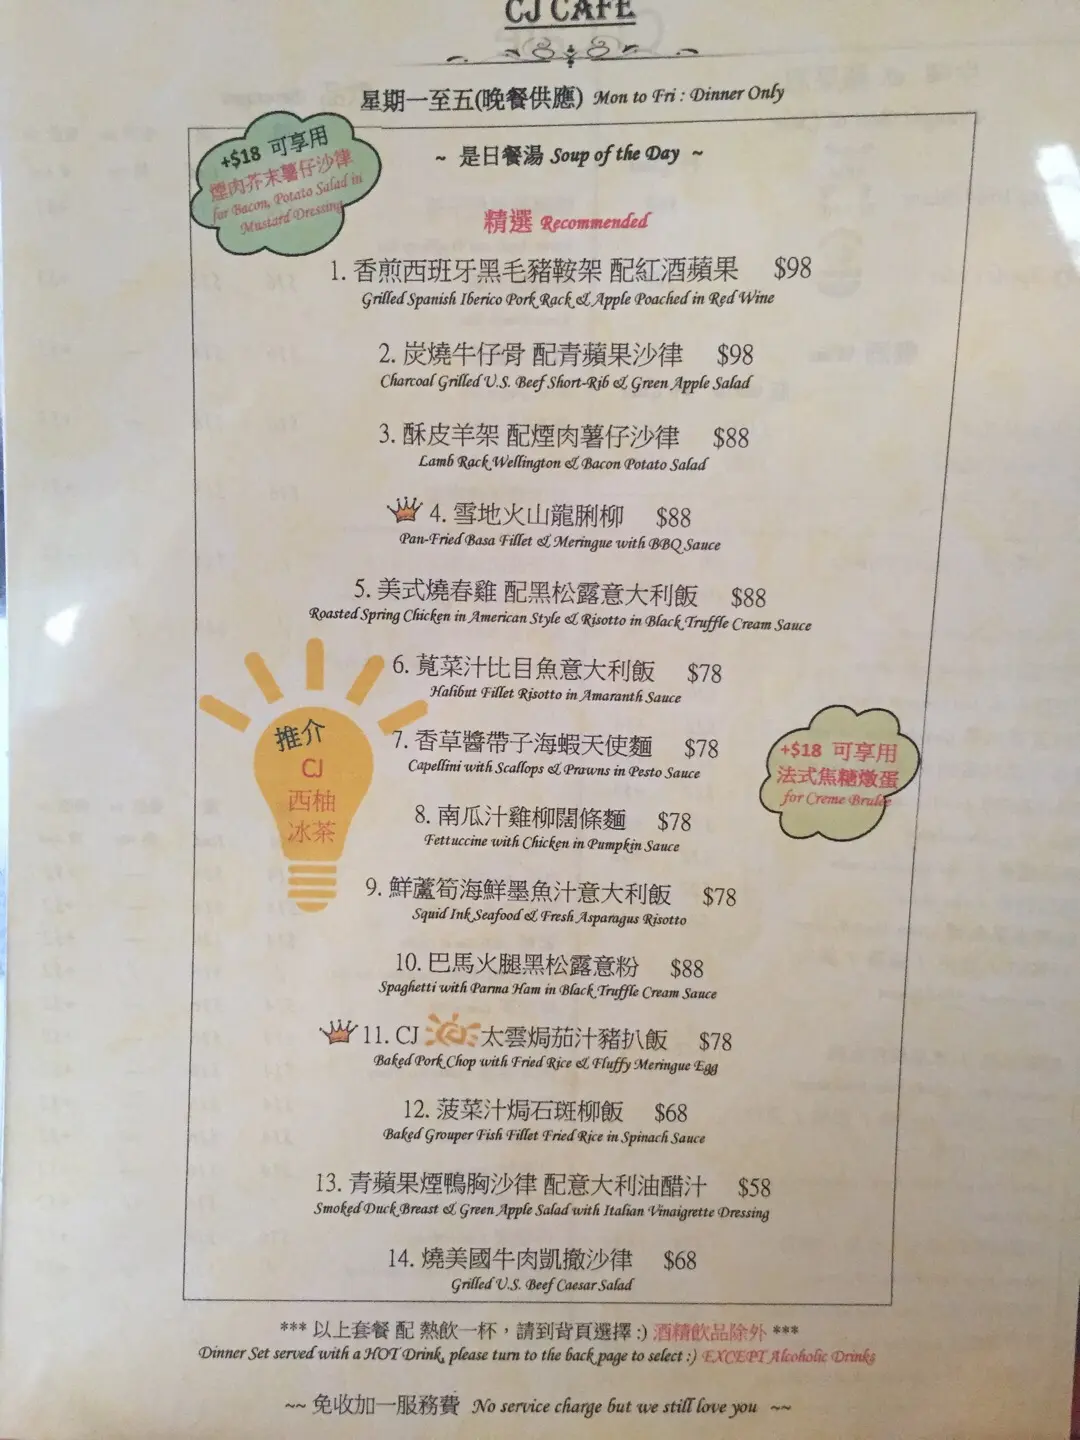 CJ CAFE
星期一至五(晚餐供應) Mon to Fri : Dinner Only
+$18 可享用
煙肉芥末薯仔沙律
for Bacon, Potato Salad in
Mustard Dressing
~ 是日餐湯 Soup of the Day ~
精選 Recommended
1. 香煎西班牙黑毛豬鞍架 配紅酒蘋果 $98
Grilled Spanish Iberico Pork Rack & Apple Poached in Red Wine
2. 炭燒牛仔骨 配青蘋果沙律 $98
Charcoal Grilled U.S. Beef Short-Rib & Green Apple Salad
3. 酥皮羊架 配煙肉薯仔沙律 $88
Lamb Rack Wellington & Bacon Potato Salad
4. 雪地火山龍脷柳 $88
Pan-Fried Basa Fillet & Meringue with BBQ Sauce
5. 美式燒春雞 配黑松露意大利飯 $88
Roasted Spring Chicken in American Style & Risotto in Black Truffle Cream Sauce
6. 莧菜汁比目魚意大利飯 $78
Halibut Fillet Risotto in Amaranth Sauce
推介
CJ
西柚
冰茶
7. 香草醬帶子海蝦天使麵 $78
Capellini with Scallops & Prawns in Pesto Sauce
+$18 可享用
法式焦糖燉蛋
for Creme Brulee
8. 南瓜汁雞柳闊條麵 $78
Fettuccine with Chicken in Pumpkin Sauce
9. 鮮蘆筍海鮮墨魚汁意大利飯 $78
Squid Ink Seafood & Fresh Asparagus Risotto
10. 巴馬火腿黑松露意粉 $88
Spaghetti with Parma Ham in Black Truffle Cream Sauce
11. CJ 太雲焗茄汁豬扒飯 $78
Baked Pork Chop with Fried Rice & Fluffy Meringue Egg
12. 菠菜汁焗石斑柳飯 $68
Baked Grouper Fish Fillet Fried Rice in Spinach Sauce
13. 青蘋果煙鴨胸沙律 配意大利油醋汁 $58
Smoked Duck Breast & Green Apple Salad with Italian Vinaigrette Dressing
14. 燒美國牛肉凱撒沙律 $68
Grilled U.S. Beef Caesar Salad
*** 以上套餐 配 熱飲一杯，請到背頁選擇 :) 酒精飲品除外 ***
Dinner Set served with a HOT Drink, please turn to the back page to select :) EXCEPT Alcoholic Drinks
~~ 免收加一服務費 No service charge but we still love you ~~